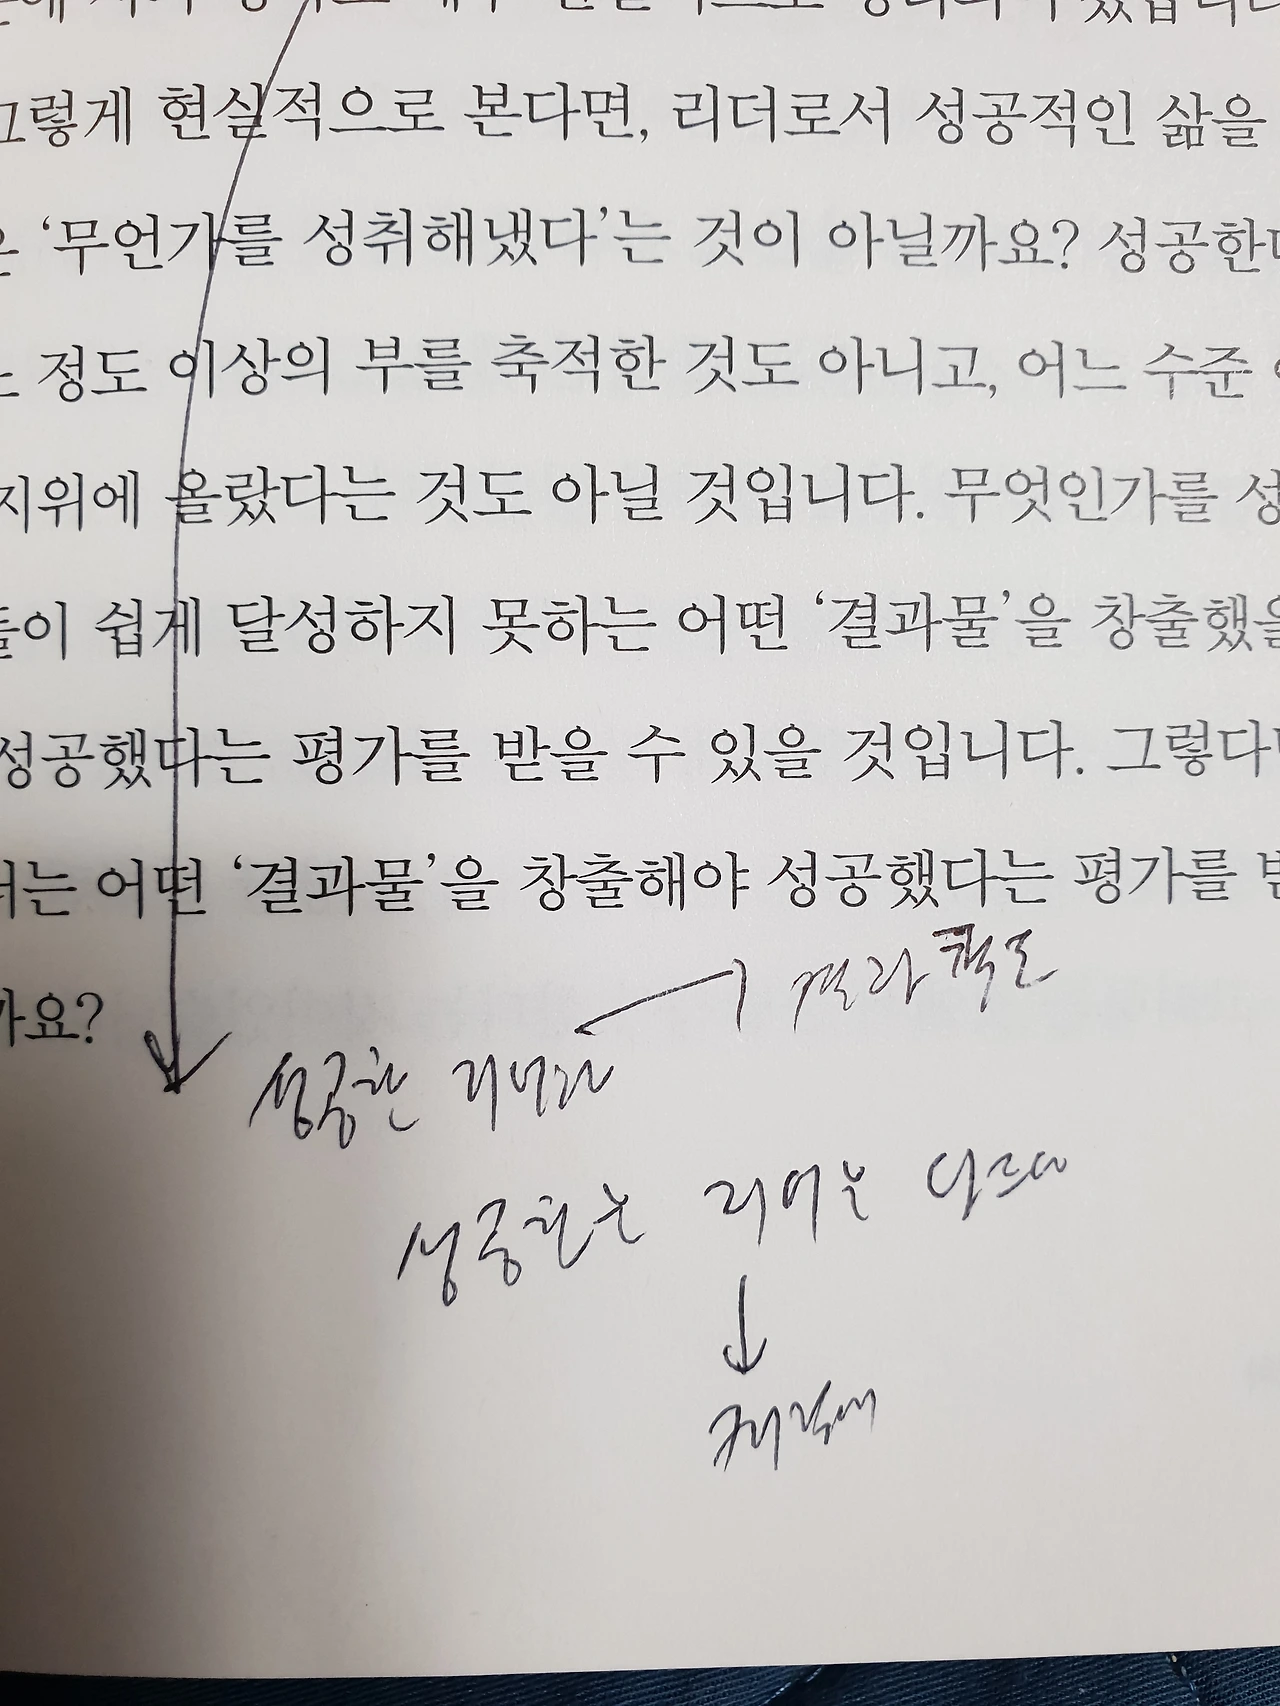 그렇게 현실적으로 본다면, 리더로서 성공적인 삶을
'무언가를 성취해냈다'는 것이 아닐까요? 성공한다
정도 이상의 부를 축적한 것도 아니고, 어느 수준
지위에 올랐다는 것도 아닐 것입니다. 무엇인가를 성
들이 쉽게 달성하지 못하는 어떤 '결과물'을 창출했을
성공했다는 평가를 받을 수 있을 것입니다. 그렇다
더는 어떤 '결과물'을 창출해야 성공했다는 평가를 받
까요?
성공한
성공한는 리더는 다르다